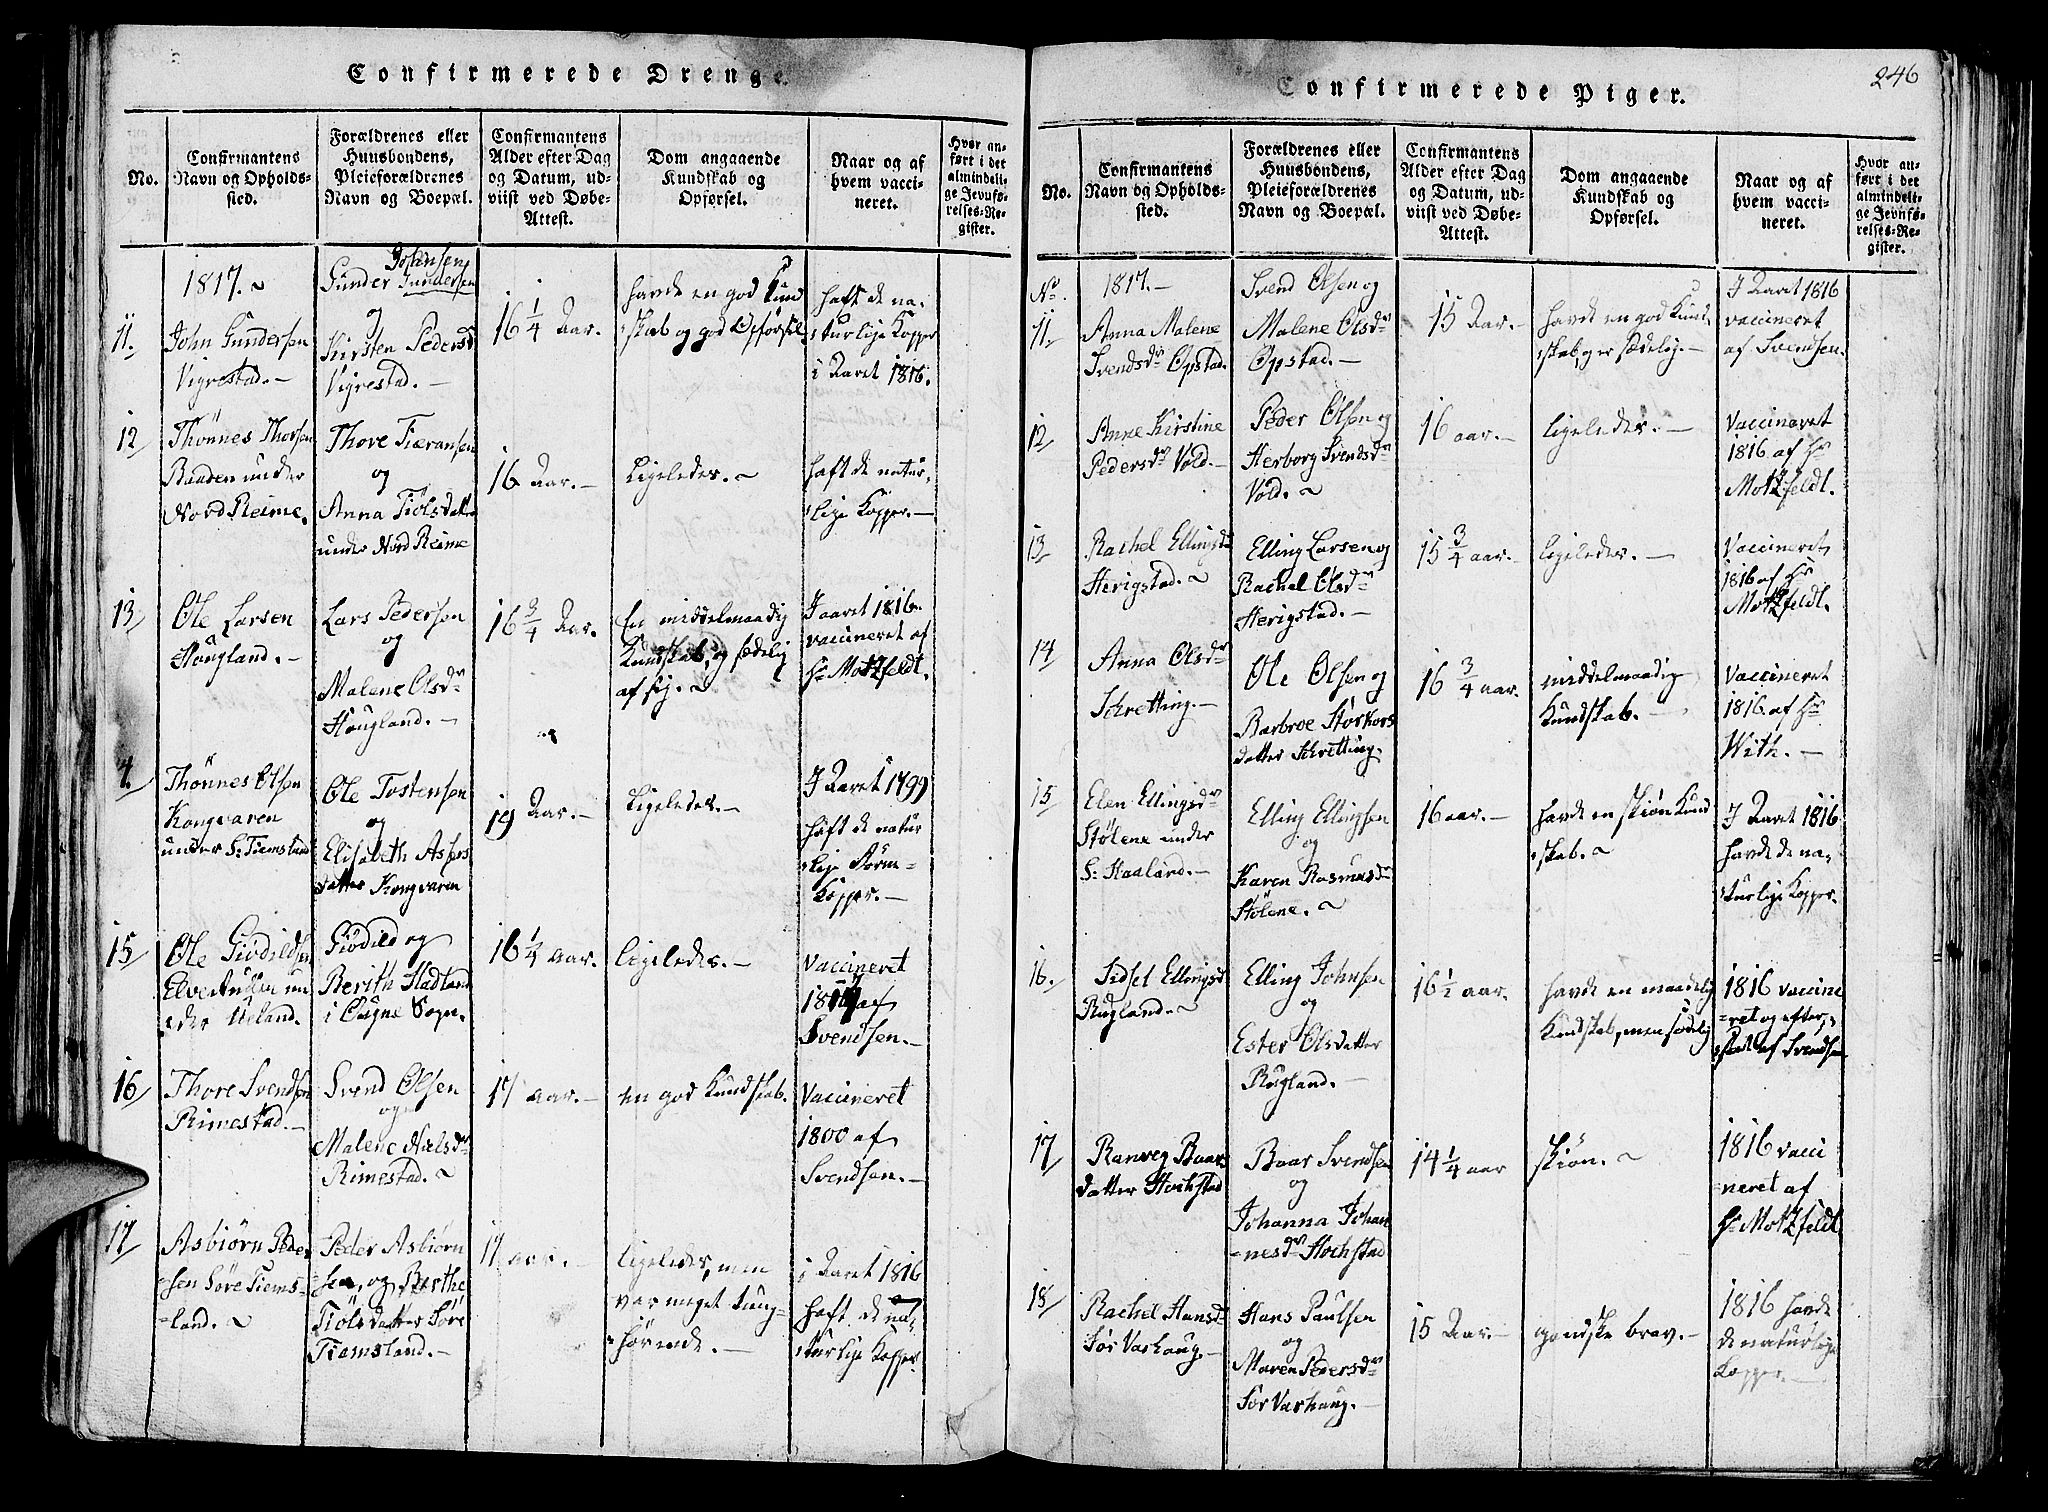 Confirmerede Drenge.
No.
Confirmantens
Navn og Opholds-
sted.
Forældrenes eller
Huusbondens,
Pleieforældrenes
Navn og Boepæl.
Confirmantens
Alder efter Dag
og Datum, ud-
viist ved Døbe-
Attest.
Dom angaaende
Kundskab og
Opførsel.
Naar og af
hvem vacci-
neret.
Hvor an-
ført i det
almindeli-
ge Jevnfø-
relses-Re-
gister.
1817.
11.
John Gundersen
Vigrestad.
Josansen
Gunder Gundersen
og
Kirsten Pedersdr
Vigrestad.
16 1/4 Aar.
havde en god Kund
skab og god Opførsel
haft de na-
turlige Kopper
i Aaret 1816.
12
Thönnes Thorsen
Baaden under
Nord Reime.
Thore Tieransen
og
Anna Tiölsdatter
under Nord Reime
16 Aar.
Ligeledes.
haft de natur-
lige Kopper.
13
Ole Larsen
Hougland.
Lars Pedersen
og
Malene Olsdr
Hougland.
16 3/4 Aar.
En middelmaadig
Kundskab, og sædelig
af sig.
I aaret 1816.
vaccineret af
Hr Motzfeldt.
4.
Thönnes Olsen
Kongvaren
under S: Tiemsland
Ole Tostensen
og
Elisabeth Asers
datter Kongvaren
19 Aar.
Ligeledes.
I Aaret 1799
haft de natur
lige Börne-
Kopper.
15
Ole Giödildsen
un
der Ueland.
Giödild og
Berith Hadland
i Ougne Sogn.
16 1/4 aar.
ligeledes.
vaccineret
af
Svendsen.
16
Thore Svendsen
Rimestad.
Svend Olsen
og
Malene Nielsdr
Rimestad.
17 aar.
en god Kundskab.
vaccineret
1800 af
Svendsen.
17
Asbiörn Peder
sen Söre Tiems-
land.
Peder Asbiörn
sen, og Berthe
Tiölsdatter Söre
Tiemsland.
17 aar.
ligeledes, men
var meget tung-
hörende.
i Aaret 1816
haft de na-
turlige Kopper.
246
Confirmerede Piger.
No.
Confirmantens
Navn og Opholds-
sted.
Forældrenes eller
Huusbondens,
Pleieforældrenes
Navn og Boepæl.
Confirmantens
Alder efter Dag
og Datum, ud-
viist ved Døbe-
Attest.
Dom angaaende
Kundskab og
Opførsel.
Naar og af
hvem vacci-
neret.
Hvor an-
ført i det
almindeli-
ge Jevnfø-
relses-Re-
gister.
No.
1817.
11
Anna Malene
Svendsdr Opstad.
Svend Olsen og
Malene Olsdr
Opstad.
15 Aar.
havde en god Kund
skab, og er sædelig.
I Aaret 1816
vaccineret
af Svendsen.
12
Anne Kirstine
Pedersdr Vold.
Peder Olsen og
Herborg Svendsdr
Vold.
16 aar.
ligeledes.
Vaccineret
1816 af Hr
Motzfeldt.
13
Rachel Ellingsdr
Herigstad.
Elling Larsen og
Rachel Olsdr
Herigstad.
15 3/4 aar.
ligeledes.
Vaccineret
1816 af Hr
Motzfeldt.
14
Anna Olsdr
Schretting.
Ole Olsen og
Barbroe Störkors
datter Schretting.
16 3/4 aar.
middelmaadig
Kundskab.
Vaccineret
1816 af Hr
With.
15
Elen Ellingsdr
Stölene under
S: Haaland.
Elling Ellingsen
og
Karen Rasmusdr
Stölene.
16 aar.
havde en skiön Kund
skab.
I Aaret 1816
havde de na-
turlige Kopper.
16.
Sidsel Ellingsd
Rugland.
Elling Johnsen
og
Ester Olsdatter
Rugland.
16 1/2 aar.
havde en maadelig
Kundskab, men sædelig
1816 vaccine
ret og efter-
af Svendsen
17
Ranveg Baar
datter Hochstad
Baar Svendsen
og
Johanna Johan
nesdr Hochstad
14 1/4 aar
skiön.
1816 vacci
neret af
Hr Motzfeldt
18
Rachel Hansdr
Sör Varhaug.
Hans Paulsen
og
Maren Pedersdr
Sör Varhaug.
15 Aar.
gandske brav.
1816 havde
de naturlige
Kopper.